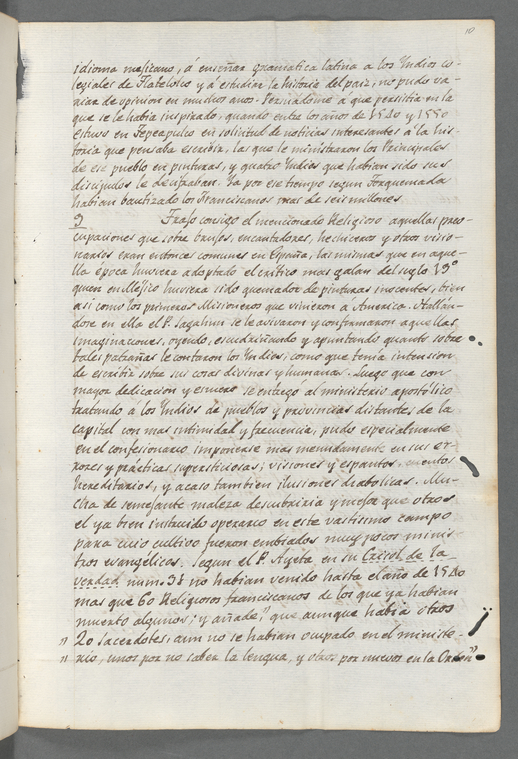 10
idioma mejicano, á enseñar gramatica latina a los Yndios co-
legiales de Tlatelolco y á estudiar la historia del pais, no pudo va-
riar de opinion en muchos anos. Persuádome a que persistia en la
que se le habia inspirado, quando entre los años de 1540 y 1550
estuvo en Tepeapulco en solicitud de noticias interesantes á la his-
toria que pensaba escribir, las que le ministraron los Principales
de ese pueblo en pinturas, y quatro Yndios que habian sido sus
discipulos le descifraban. Ya por ese tiempo segun Torquemada
habian bautizado los Franciscanos mas de seis millones.
9 Trajo consigo el mencionado Religioso aquellas preo-
cupaciones que sobre brujas, encantadores, hechiceros y otros visio-
narios eran entonces comunes en España, las mismas que en aque-
lla época huviera adoptado el crítico mas galan del siglo 19º
quien en Mejico huviera sido quemador de pinturas inocentes, bien
asi como los primeros Misioneros que vinieron á America. Hallan-
dose en ella el P. Sagahun se le avivaron y confirmaron aquellas
imaginaciones, oyendo, escudriñando y apuntando quanto sobre
tales patrañas le contaron los Yndios; como que tenia intension
de escribir sobre sus cosas divinas y humanas. Luego que con
mayor dedicacion y esmero se entregó al ministerio apostólico
tratando a los Yndios de pueblos y provincias distantes de la
capital con mas intimidad y frecuencia, pudo especialmente
en el confesionario, imponerse mas menudamente en sus er-
rores y prácticas supersticiosas; visiones y espantos, cuentos
hereditarios, y acaso tambien ilusiones diabolicas. Mu-
cha de semejante maleza descubriria y mejor que otros
el ya bien instruido operario en este vastisimo campo
para cuio cultivo fueron embiados muy pocos minis-
tros evangélicos. Segun el P. Ayeta en su Crisol de la
verdad num. 38 no habian venido hasta el año de 1540
mas que 60 Religiosos franciscanos de los que ya habian
muerto algunos; y añade, "que aunque habia otros
" 20 sacerdotes, aun no se habian ocupado en el ministe-
" rio, unos por no saber la lengua, y otros por nuevos en la Orden"